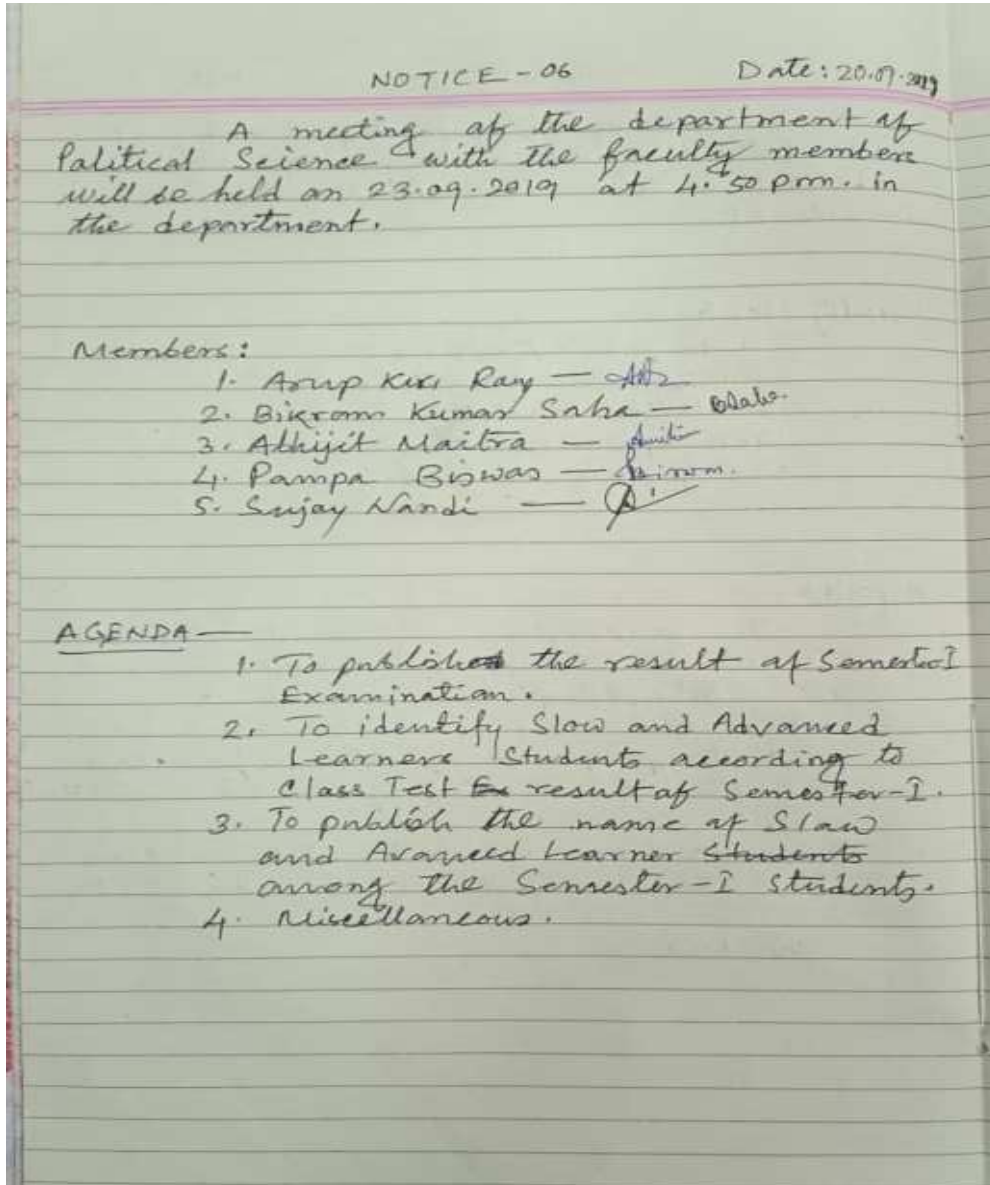 NOTICE - 06 Date: 20.09.2019
A meeting of the department of
Political Science with the faculty members
will be held on 23.09.2019 at 4.50 p.m. in
the department.
Members:
1. Arup Kr. Ray —
2. Bikram Kumar Saha — BSaha.
3. Abhijit Maitra —
4. Pampa Biswas —
5. Sujay Nandi —
AGENDA —
1. To publish the result of Semester-I
Examination.
2. To identify Slow and Advanced
Learners Students according to
Class Test result of Semester-I.
3. To publish the name of Slow
and Avanced Learner Students
among the Semester-I Students.
4. Miscellaneous.